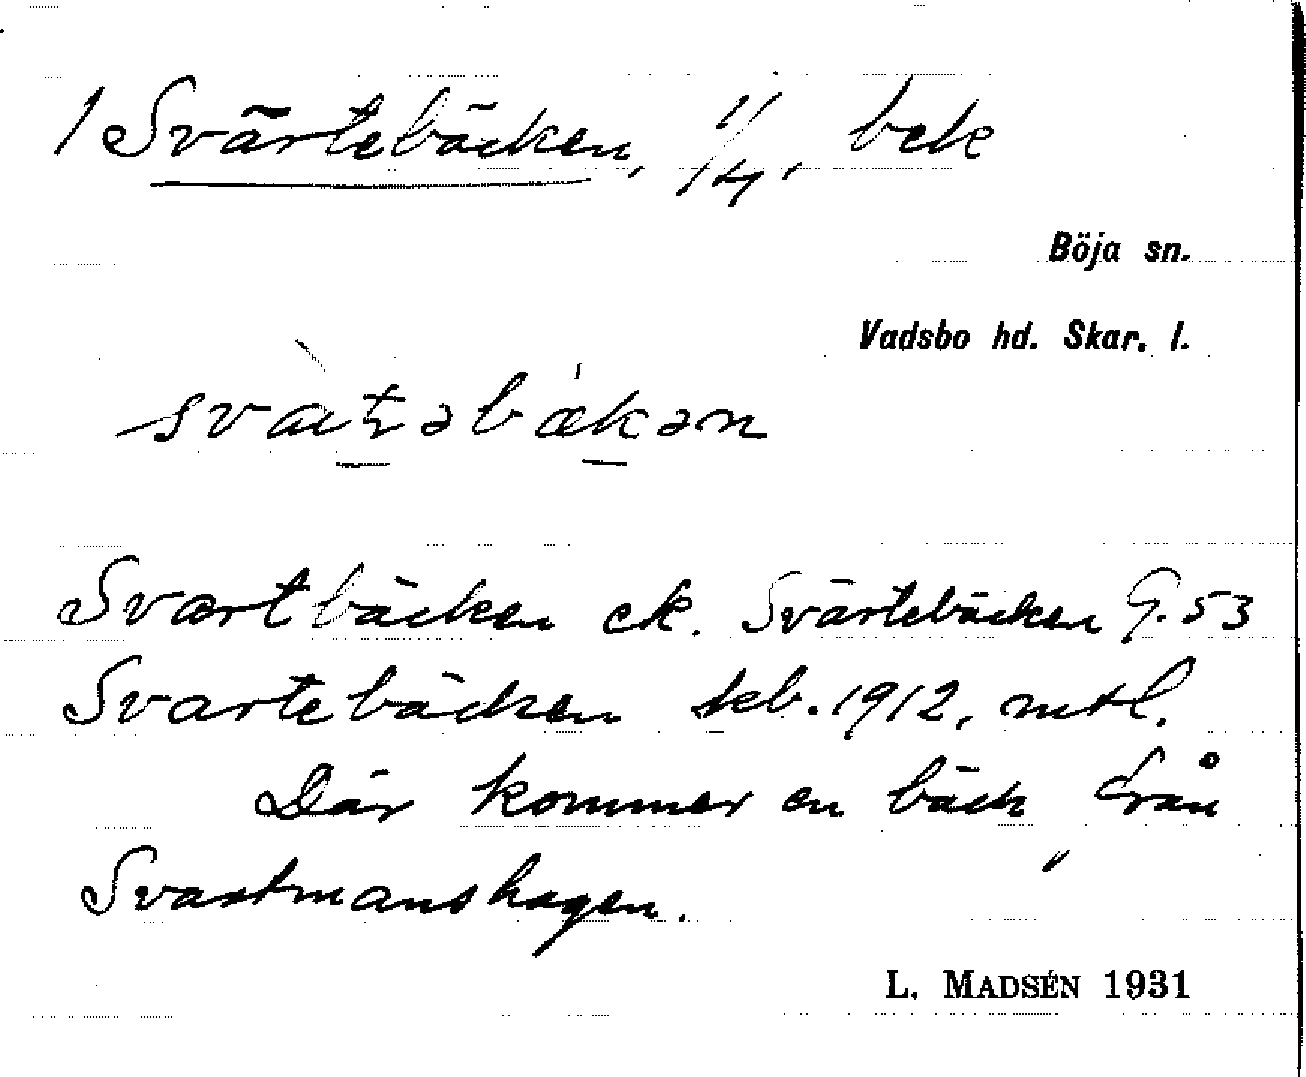 1 Svärtebäcken, 1/4, bek
Böja sn.
Vadsbo hd. Skar. l.
Svartbäcken ek. Svärtebäcken G. 53
Svartebäcken jeb. 1912, mtl.
Där kommer en bäck från
Svartmanshagen.
L. MADSÉN 1931